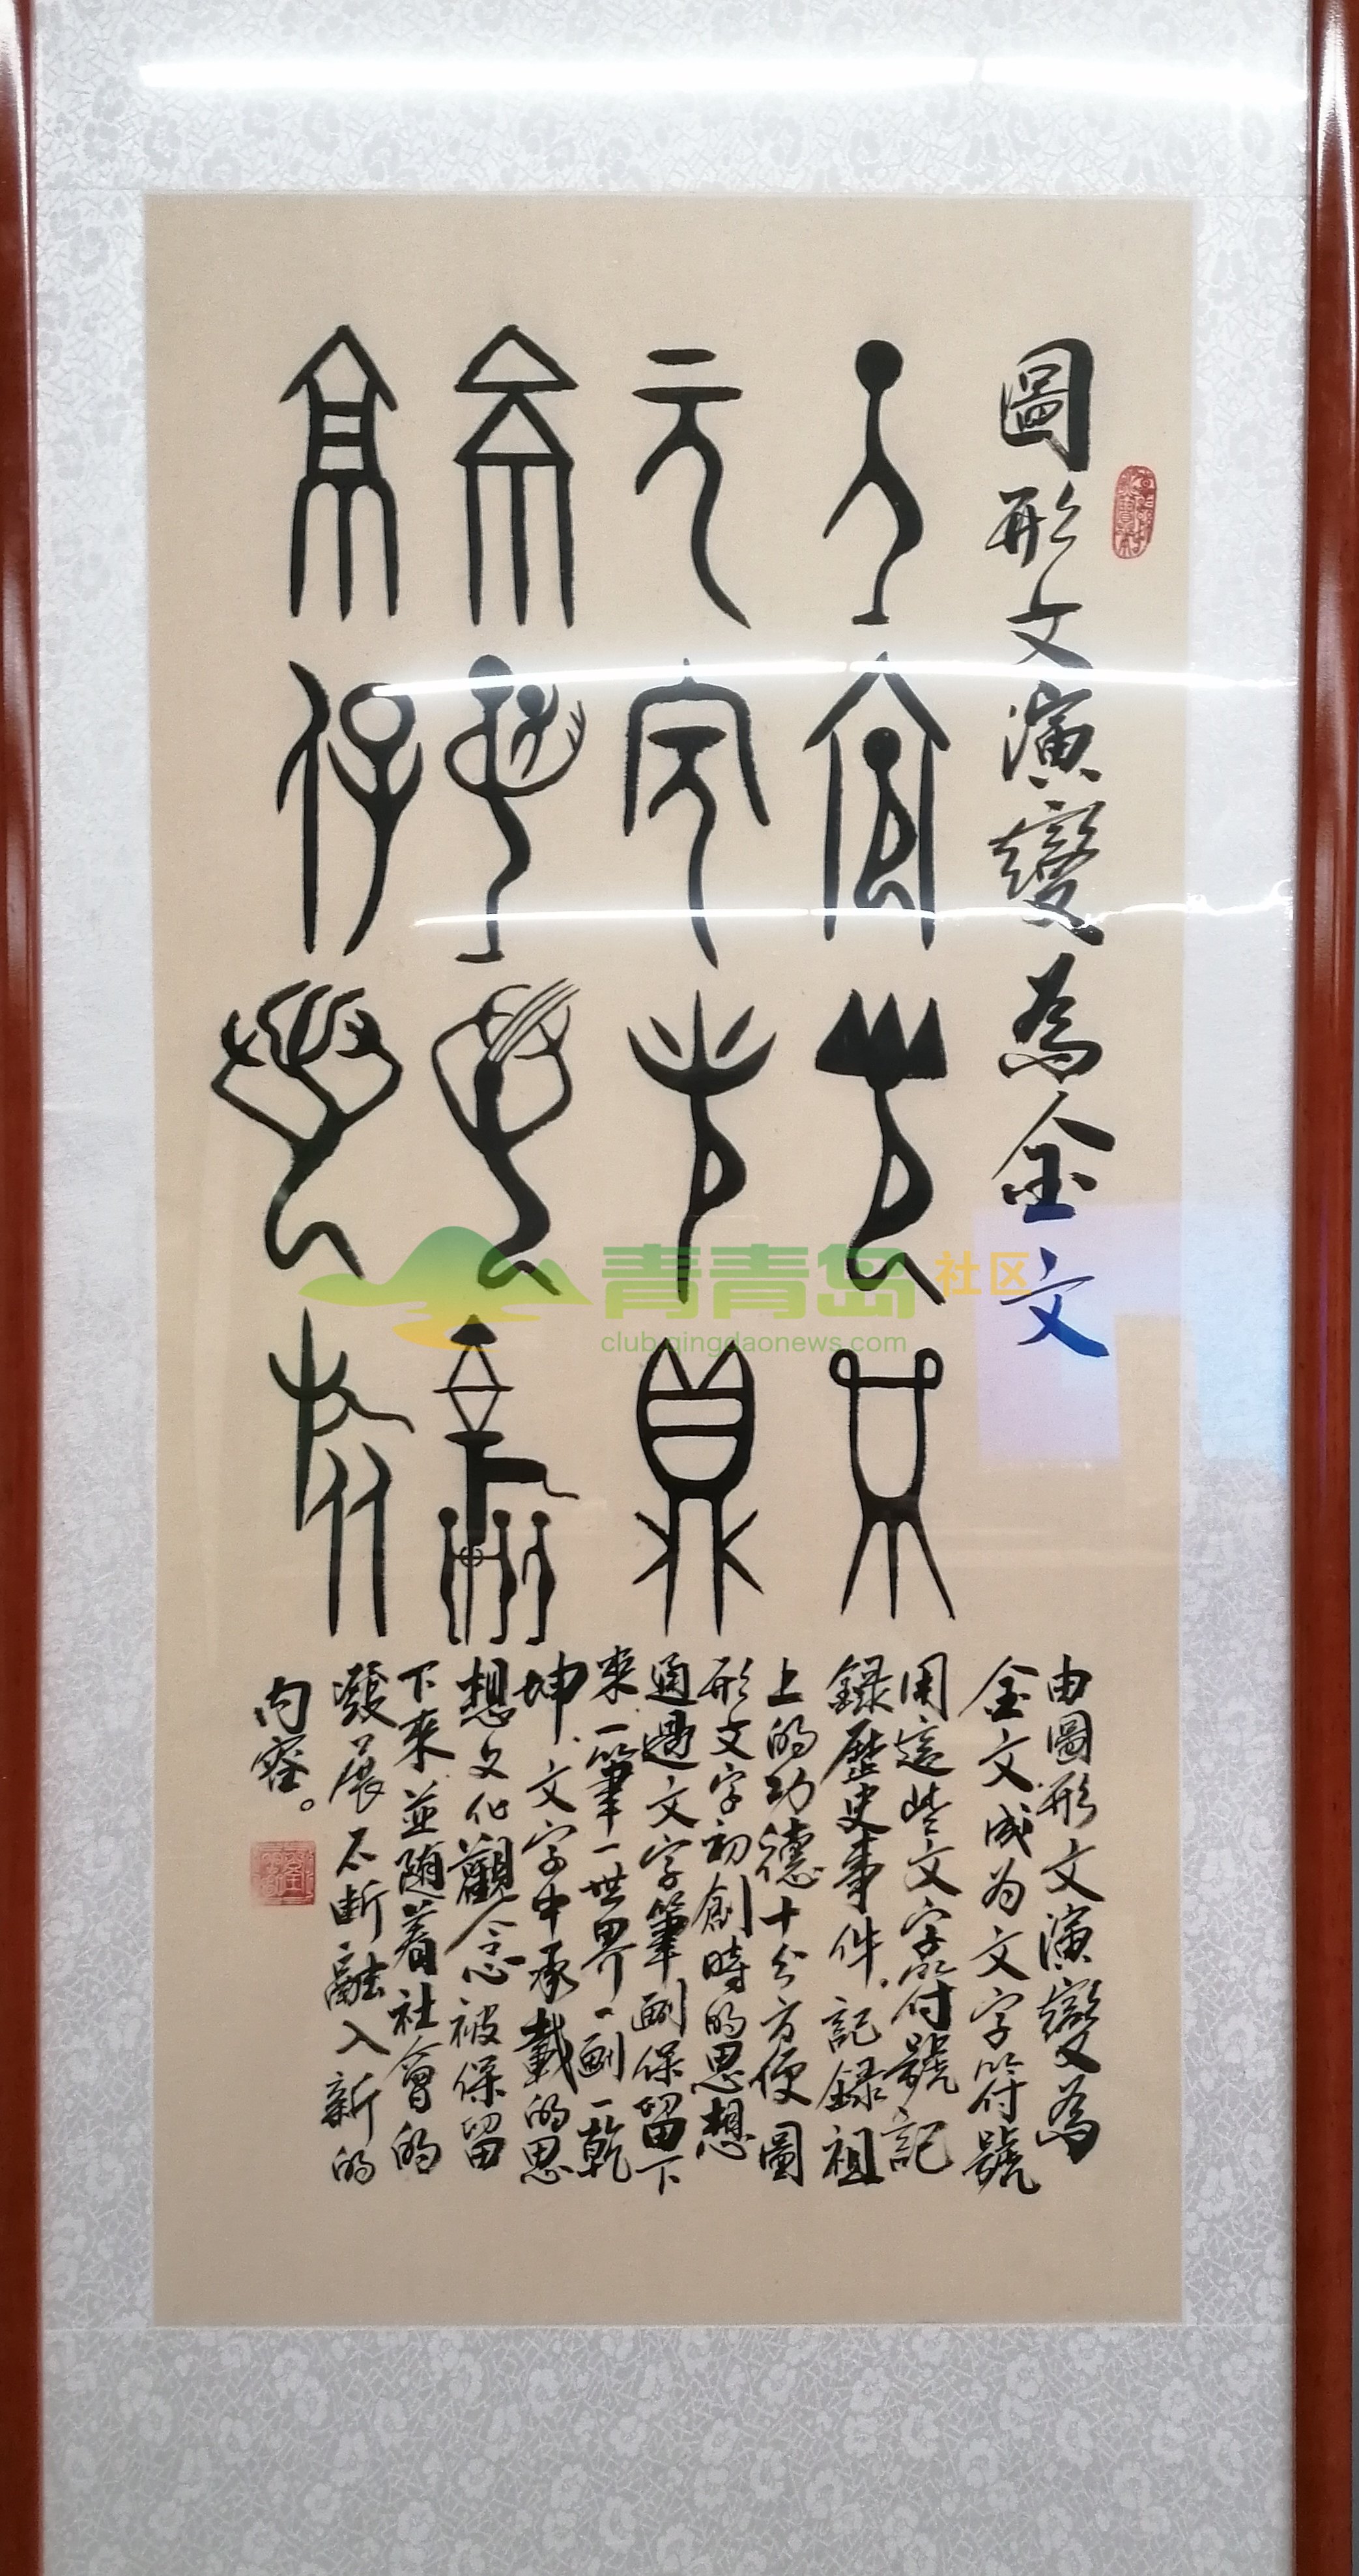 圖形文演變為金文
元 鼎
保 旅
由圖形文演變為
金文成为文字符號
用這些文字符號記
録歷史事件，記録祖
上的功德十分方便圖
形文字初創時的思想
通過文字筆劃保留下
来一筆一世界一劃一乾
坤、文字中承載的思
想文化觀念被保留
下来並随着社會的
發展不断融入新的
内容。
青青岛社区
club.qingdaonews.com